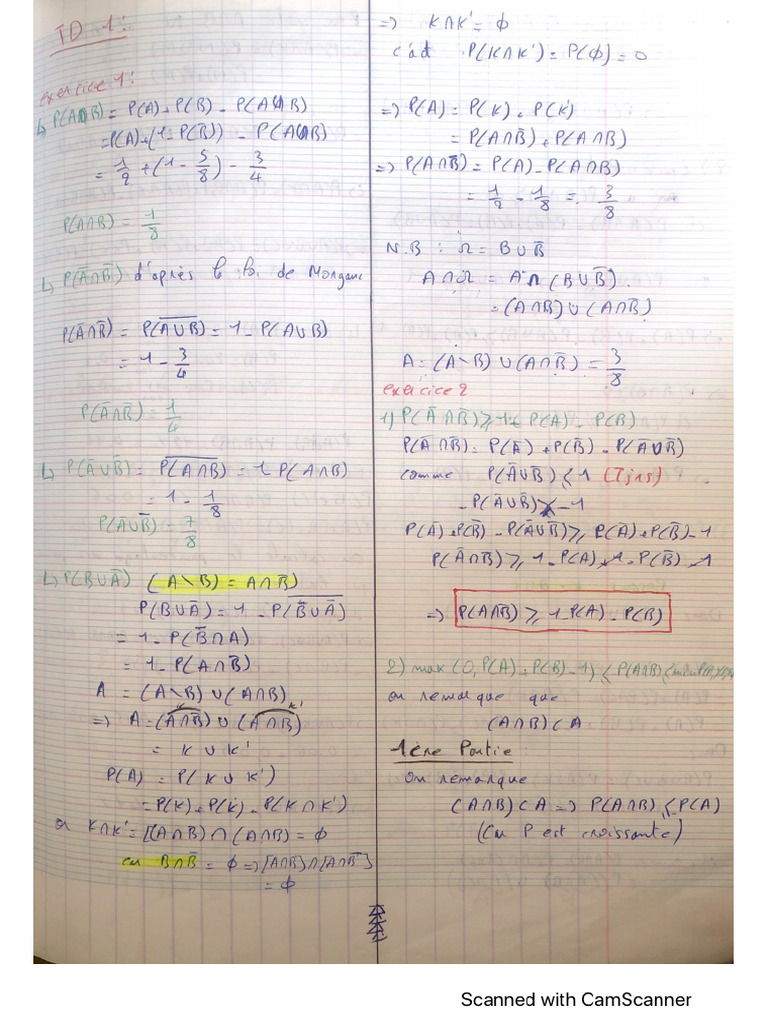 TD 1:
exercice 1:
↳ P(A∩B) = P(A) + P(B) - P(A∪B)
= P(A) + (1 - P(B̄)) - P(A∪B)
= 1/2 + (1 - 5/8) - 3/4
P(A∩B) = 1/8
↳ P(Ā∩B̄) d'après la loi de Morgane
P(Ā∩B̄) = P(A̅∪̅B̅) = 1 - P(A∪B)
= 1 - 3/4
P(Ā∩B̄) = 1/4
↳ P(Ā∪B̄) = P(A̅∩̅B̅) = 1 - P(A∩B)
= 1 - 1/8
P(Ā∪B̄) = 7/8
↳ P(B∪Ā) (A∖B) = A∩B̄)
P(B∪Ā) = 1 - P(B̅∪̅Ā̅)
= 1 - P(B̄∩A)
= 1 - P(A∩B̄)
A = (A∖B) ∪ (A∩B)
=> A = (A∩B̄) ∪ (A∩B) K'
= K ∪ K'
P(A) = P(K ∪ K')
= P(K) + P(K') - P(K∩K')
or K∩K' = [(A∩B̄) ∩ (A∩B) = ϕ
car B∩B̄ = ϕ => [A∩B] ∩ [A∩B̄]
= ϕ
=> K∩K' = ϕ
c'àd P(K∩K') = P(ϕ) = 0
=> P(A) = P(K) + P(K')
= P(A∩B̄) + P(A∩B)
=> P(A∩B̄) = P(A) - P(A∩B)
= 1/2 - 1/8 = 3/8
N.B : Ω = B∪B̄
A∩Ω = A∩(B∪B̄)
= (A∩B) ∪ (A∩B̄)
A = (A∖B) ∪ (A∩B) = 3/8
exercice 2
1) P(Ā∩B̄) ≥ 1 - P(A) - P(B)
P(Ā∩B̄) = P(Ā) + P(B̄) - P(Ā∪B̄)
comme P(Ā∪B̄) ≤ 1 (Tjrs)
- P(Ā∪B̄) ≥ -1
P(Ā) + P(B̄) - P(Ā∪B̄) ≥ P(Ā) + P(B̄) - 1
P(Ā∩B̄) ≥ 1 - P(A) + 1 - P(B) - 1
=> P(Ā∩B̄) ≥ 1 - P(A) - P(B)
2) max (0, P(A) + P(B) - 1) ≤ P(A∩B) ≤
on remarque que
(A∩B) ⊂ A
1ère Partie :
On remarque
(A∩B) ⊂ A => P(A∩B) ≤ P(A)
(Car P est croissante)
Scanned with CamScanner